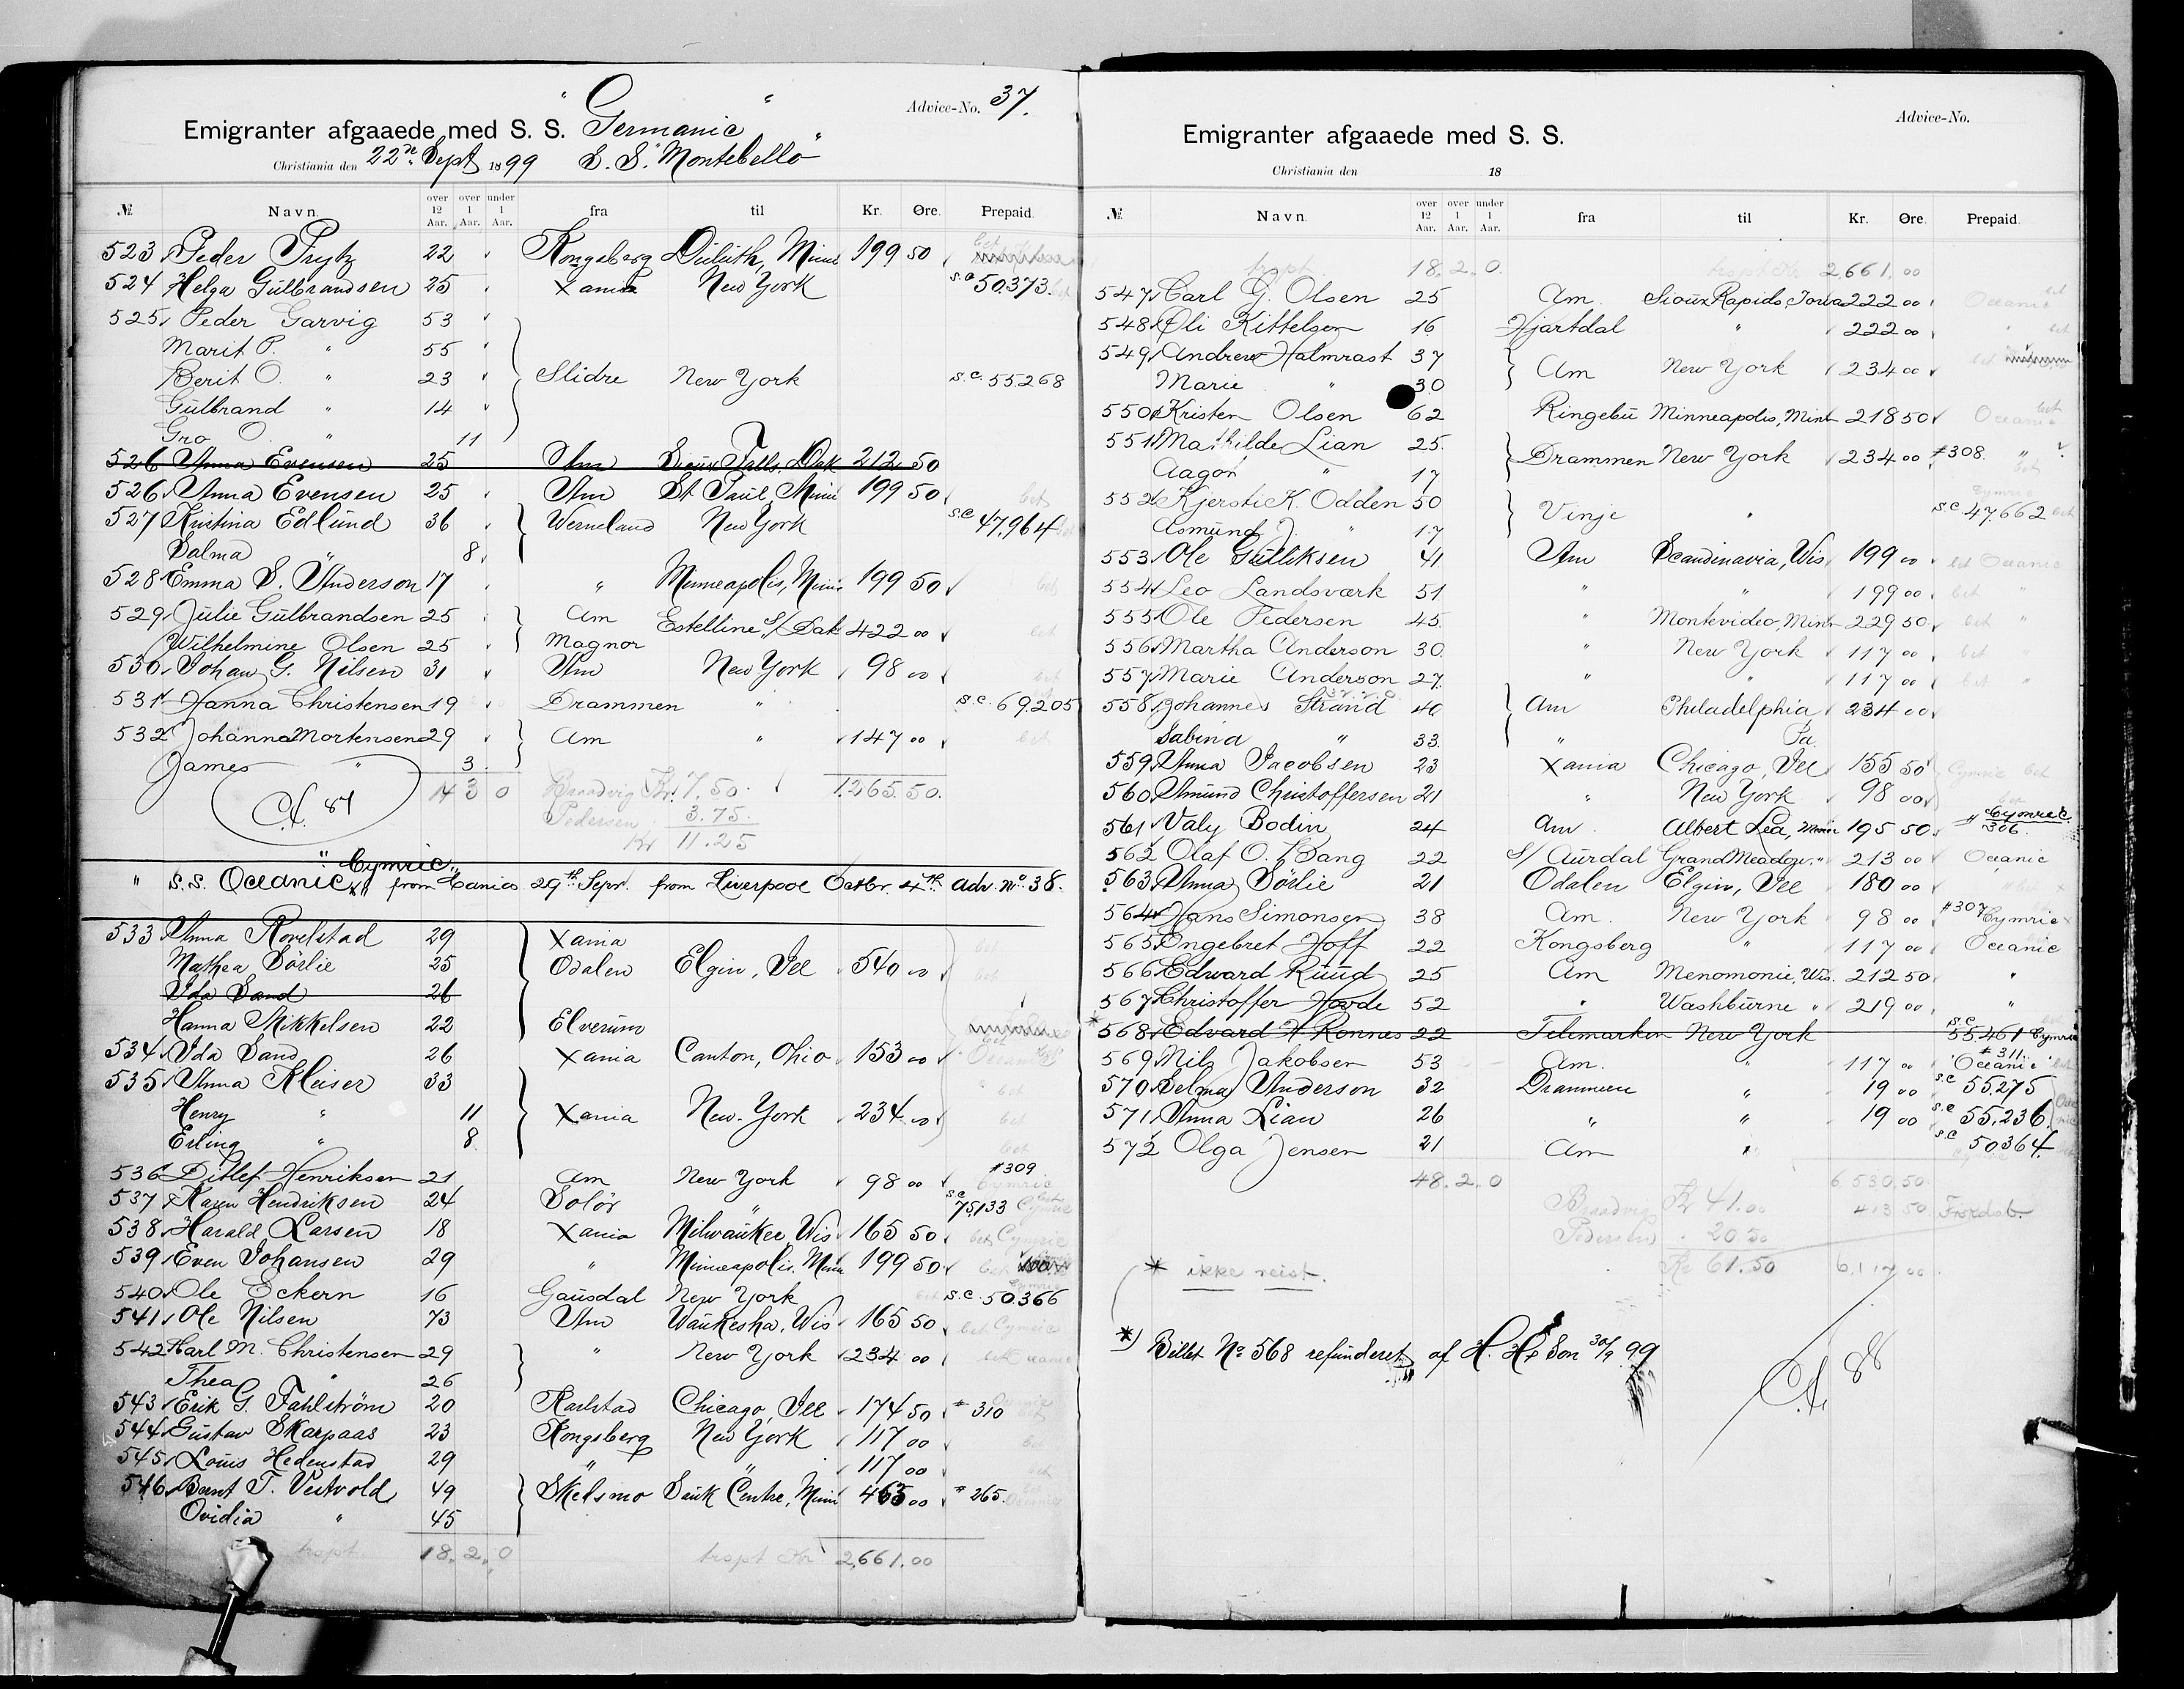 " Germanic "
Advice-No. 37.
Emigranter afgaaede med S. S.
Christiania den 22n Sept 1899 S. S. "Montebello"
№ Navn. over 12 Aar. over 1 Aar. under 1 Aar. fra til Kr. Øre. Prepaid.
523 Peder Prytz 22 Kongsberg Duluth, Minn 199 50 bet
524 Helga Gulbrandsen 25 Xania New York s.c. 50.373. bet
525 Peder Garvig 53
Marit P. " 55
Berit O. " 23 Slidre New York s.c. 55.268
Gulbrand " 14
Gro O. " 11
526 Anna Evensen 25 Am Sioux Falls, Dak 212 50
526 Anna Evensen 25 Am St Paul, Minn 199 50 bet
527 Kristina Edlund 36 Wermeland New York s.c. 47.964 bet
Salma " 8
528 Emma S. Anderson 17 " Minneapolis, Minn 199 50 bet
529 Julie Gulbrandsen 25 Am Estelline S/Dak 422 00 bet
Wilhelmine Olsen 25 Magnor
530 Johan G. Nilsen 31 Am New York 98 00 bet
531 Hanna Christensen 19 Drammen " s.c. 69.205
532 Johanna Mortensen 29 Am " 147 00 bet
James " 3
14 3 0 Braadvig Kr. 7.50. 1.265.50.
Cf. 87
Pedersen 3.75.
Kr 11.25
"Cymric"
" S.S. Oceanic, from Xania 29th Sepr. from Liverpool Octbr. 4th adv. No 38.
533 Anna Rovelstad 29 Xania bet
Mathea Sörlie 25 Odalen Elgin, Ill 540 00 bet
Ida Sand 26
Hanna Mikkelsen 22 Elverum
534 Ida Sand 26 Xania Canton, Ohio 153 00 Oceanic
535 Anna Kleiser 33 " bet
Henry " 11 Xania New-York 234 00 bet
Erling " 8
536 Ditlef Henriksen 21 Am New York 98 00 #309 Cymric
537 Karen Hendriksen 24 Solör " s.c. 75133 Cymric
538 Harald Larsen 18 Xania Milwaukee, Wis 165 50 bet Cymric
539 Even Johansen 29 " Minneapolis, Minn 199 50 bet
540 Ole Eckern 16 Gausdal New York bet s.c. 50.366 Cymric
541 Ole Nilsen 73 Am Waukesha, Wis 165 50 bet Cymric
542 Karl M. Christensen 29 " New York 234 00 bet
Thea " 26
543 Erik G. Fahlström 20 Karlstad Chicago, Ill 174 50 # 310
544 Gustav Skarpaas 23 Kongsberg New York 117 00 bet
545 Louis Hedenstad 29 " " 117 00 bet
546 Bernt T. Vestvold 49 Skedsmo Sauk Centre, Minn 465 00 # 265. Oceanic
Ovidia " 45
trspt 18. 2. 0 trspt Kr 2,661.00
Advice-No.
Emigranter afgaaede med S. S.
Christiania den 18
№ Navn. over 12 Aar. over 1 Aar. under 1 Aar. fra til Kr. Øre. Prepaid.
trspt. 18. 2. 0. trspt Kr 2,661.00
547 Carl G. Olsen 25 Am. Sioux Rapids, Iowa 222 00 Oceanic bet
548 Oli Kittelsen 16 Hjartdal " 222 00 " bet
549 Andrew Halmrast 37 Am New York 234 00 bet
Marie " 30
550 Kristen Olsen 62 Ringebu Minneapolis, Minn 218 50 Oceanic bet
551 Mathilde Lian 25. Drammen New York 234 00 #308. " bet
Aagot " 17
552 Kjersti K. Odden 50 Vinje " Cymric s.c. 47.662 bet
Asmund J. " 17
553 Ole Gulliksen 41 Am Scandinavia, Wis 199 00 bet Oceanic
554 Leo Landsværk 51 " " 199 00 bet "
555 Ole Pedersen 45. " Montevideo, Minn 229 50 bet "
556 Martha Anderson 30. " New York 117 00 bet "
557 Marie Anderson 27. " " 117 00 bet "
558 Johannes Strand 40 Am Philadelphia 234 00
Sabina " 33. " Pa.
559 Anna Jacobsen 23 Xania Chicago, Ill 155 50 Cymric bet
560 Amund Christoffersen 21 " New York 98 00
561 Valy Bodin 24 Am. Albert Lea, Minn 195 50 " Cymric 306.
562 Olaf O. Bang 22 S/ Aurdal Grand Meadow, " 213 00 Oceanic
563 Anna Sörlie 21 Odalen Elgin, Ill 180 00 " bet
564 Hans Simonsen 38 Am. New York 98 00 #307 Cymric
565 Engebret Hoff 22 Kongsberg " 117 00 Oceanic
566 Edward Ruud 25 Am Menomonie, Wis. 212 50 "
567 Christoffer Hovde 52 " Washburne " 219 00 "
* 568 Edvard A. Ronnes 22 Telemarken New York s.c. 55.461 Cymric
569 Nils Jakobsen 53 Am. " 117 00 # 311. Oceanic bet
570 Selma Anderson 32 Drammen " 19 00 s.c. 55.275
571 Anna Lian 26 " " 19 00 s.c. 55.236
572 Olga Jensen 21 Am " s.c. 50364.
48. 2. 0 6 530.50.
Braadvig Kr 41.00 413 50
Pedersen . 20 50
Kr 61.50 6,117 00
* ikke reist.
*) Billet No 568 refunderet af H. H. & Son 30/9 99
Cf. 88